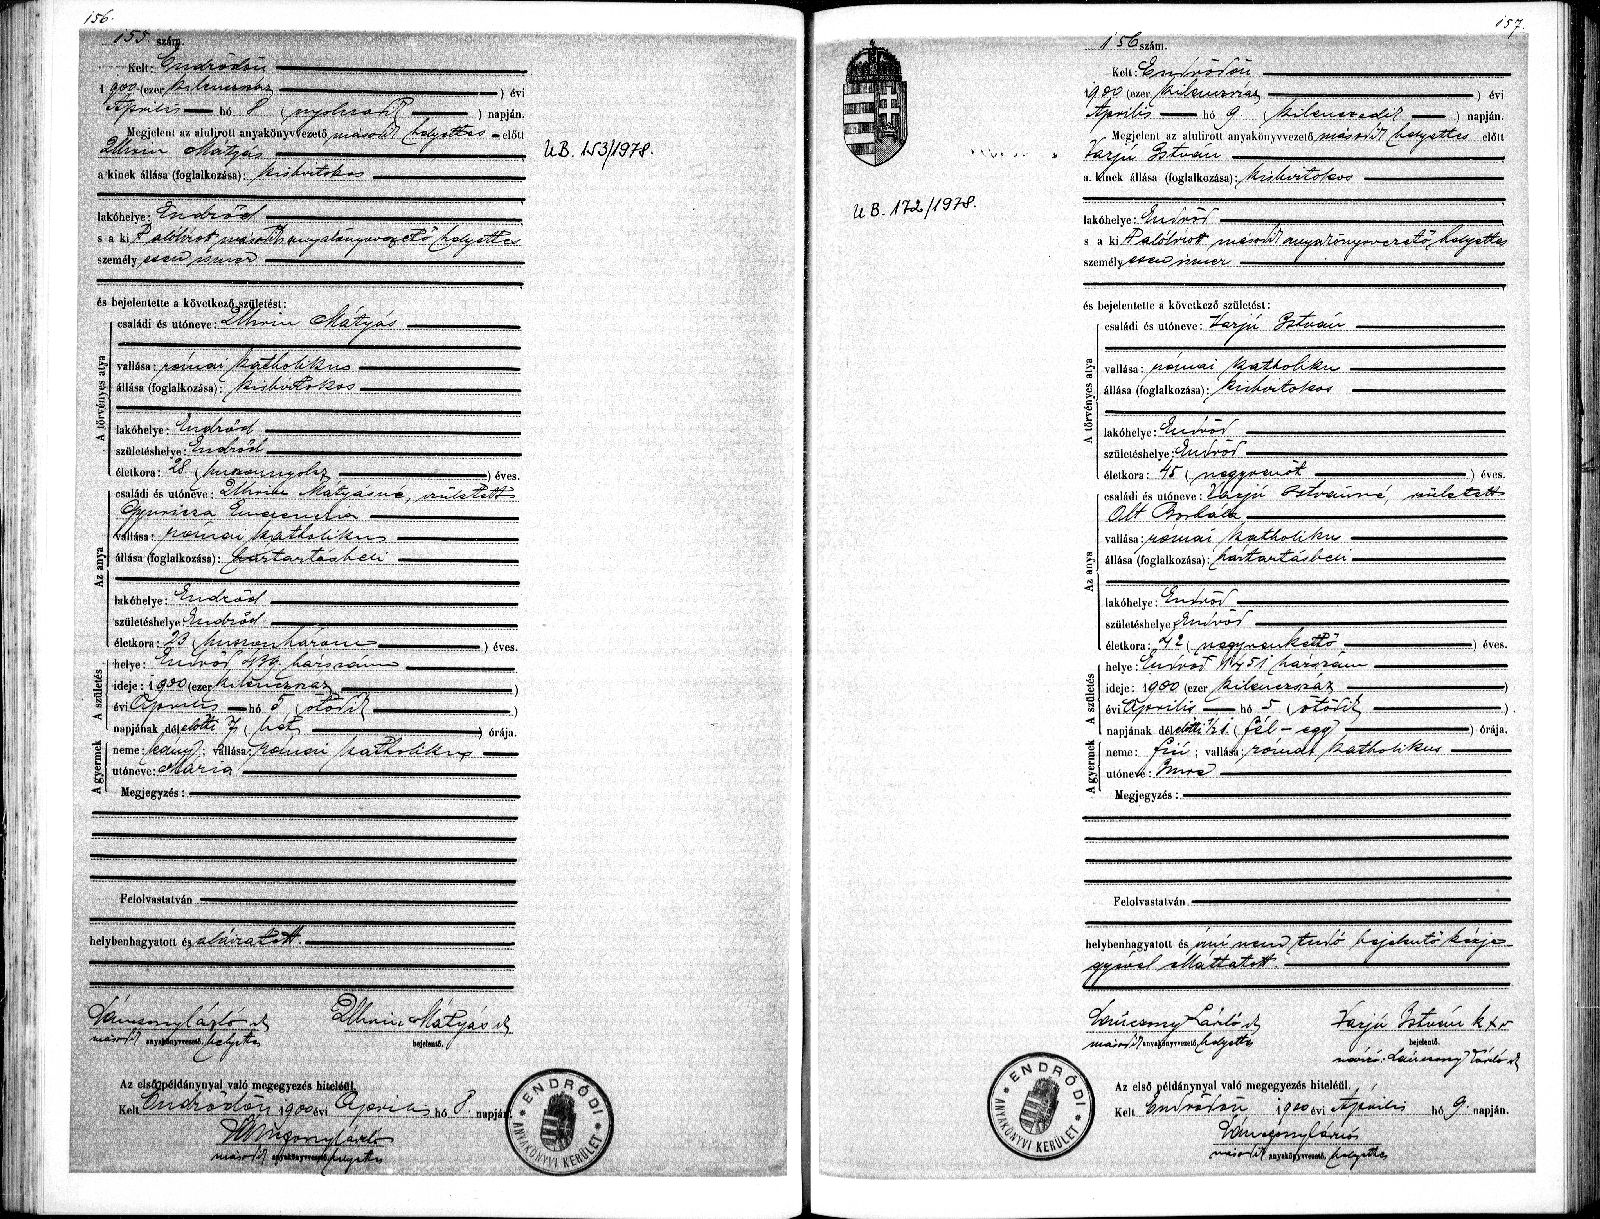 156.
155. szám.
Kelt: Endrődön
1900 (ezer kilenczszáz ) évi
Április hó 8 ( nyolczadik ) napján.
Megjelent az alulirott anyakönyvvezető második helyettes előtt
Mátyás
a kinek állása (foglalkozása): kisbirtokos
lakóhelye: Endrőd
s a ki alólirott második anyakönyvvezető helyettes
személyesen ismer
és bejelentette a következő születést:
A törvényes atya
családi és utóneve: Mátyás
vallása: római katholikus
állása (foglalkozása): kisbirtokos
lakóhelye: Endrőd
születéshelye: Endrőd
életkora: 28 ( huszonnyolcz ) éves.
Az anya
családi és utóneve: Mátyásné, született
Gyuricza Emerenczia
vallása: római katholikus
állása (foglalkozása): háztartásbeli
lakóhelye: Endrőd
születéshelye: Endrőd
életkora: 23 ( huszonhárom ) éves.
A születés
helye: Endrőd házszám
ideje: 1900 (ezer kilenczszáz )
évi Április hó 5 ( ötödik )
napjának délelőtti 7 ( hét ) órája.
A gyermek
neme: leány; vallása: római katholikus
utóneve: Mária
Megjegyzés:
Felolvastatván
helybenhagyatott és aláiratott.
Mátyás
második anyakönyvvezető, helyettes bejelentő.
Az első példánynyal való megegyezés hiteléül.
Kelt Endrődön 1900 évi Április hó 8. napján.
második anyakönyvvezető, helyettes
ENDRŐDI ANYAKÖNYVI KERÜLET
UB. 153/1978.
157.
UB. 172/1978.
156 szám.
Kelt: Endrődön
1900 (ezer kilenczszáz ) évi
Április hó 9 ( kilenczedik ) napján.
Megjelent az alulirott anyakönyvvezető második helyettes előtt
Varjú István
a kinek állása (foglalkozása): kisbirtokos
lakóhelye: Endrőd
s a ki alólirott második anyakönyvvezető helyettes
személyesen ismer
és bejelentette a következő születést:
A törvényes atya
családi és utóneve: Varjú István
vallása: római katholikus
állása (foglalkozása): kisbirtokos
lakóhelye: Endrőd
születéshelye: Endrőd
életkora: 45 ( negyvenöt ) éves.
Az anya
családi és utóneve: Varjú Istvánné, született
Alt Borbála
vallása: római katholikus
állása (foglalkozása): háztartásbeli
lakóhelye: Endrőd
születéshelye: Endrőd
életkora: 42 ( negyvenkettő ) éves.
A születés
helye: Endrőd házszám
ideje: 1900 (ezer kilenczszáz )
évi Április hó 5 ( ötödik )
napjának délelőtti 1/2 1. ( fél-egy ) órája.
A gyermek
neme: fiú; vallása: római katholikus
utóneve: Imre
Megjegyzés:
Felolvastatván
helybenhagyatott és irni nem tudó bejelentő kézje-
gyével elláttatott.
László Varjú István k x v
második anyakönyvvezető, helyettes bejelentő.
László
Az első példánynyal való megegyezés hiteléül.
Kelt Endrődön 1900 évi Április hó 9. napján.
második anyakönyvvezető, helyettes
ENDRŐDI ANYAKÖNYVI KERÜLET